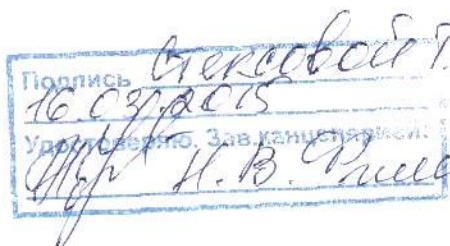 Подпись Стексовой Т.
16.03.2015
Удостоверяю. Зав. канцелярией:
Н. В.